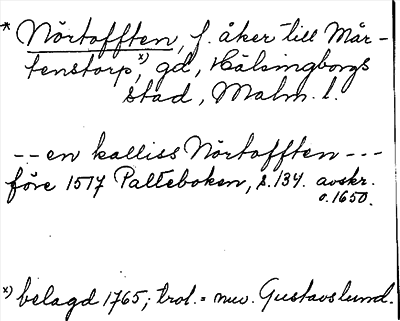 * Nörtofften, f. åker till Mår-
tenstorp,x) gd, Hälsingborgs
stad, Malm. l.
--- en kalliss Nörtofften ---
före 1517 Palteboken, s. 134. avskr.
o. 1650.
x) belagd 1765; trol. = nuv. Gustavslund.